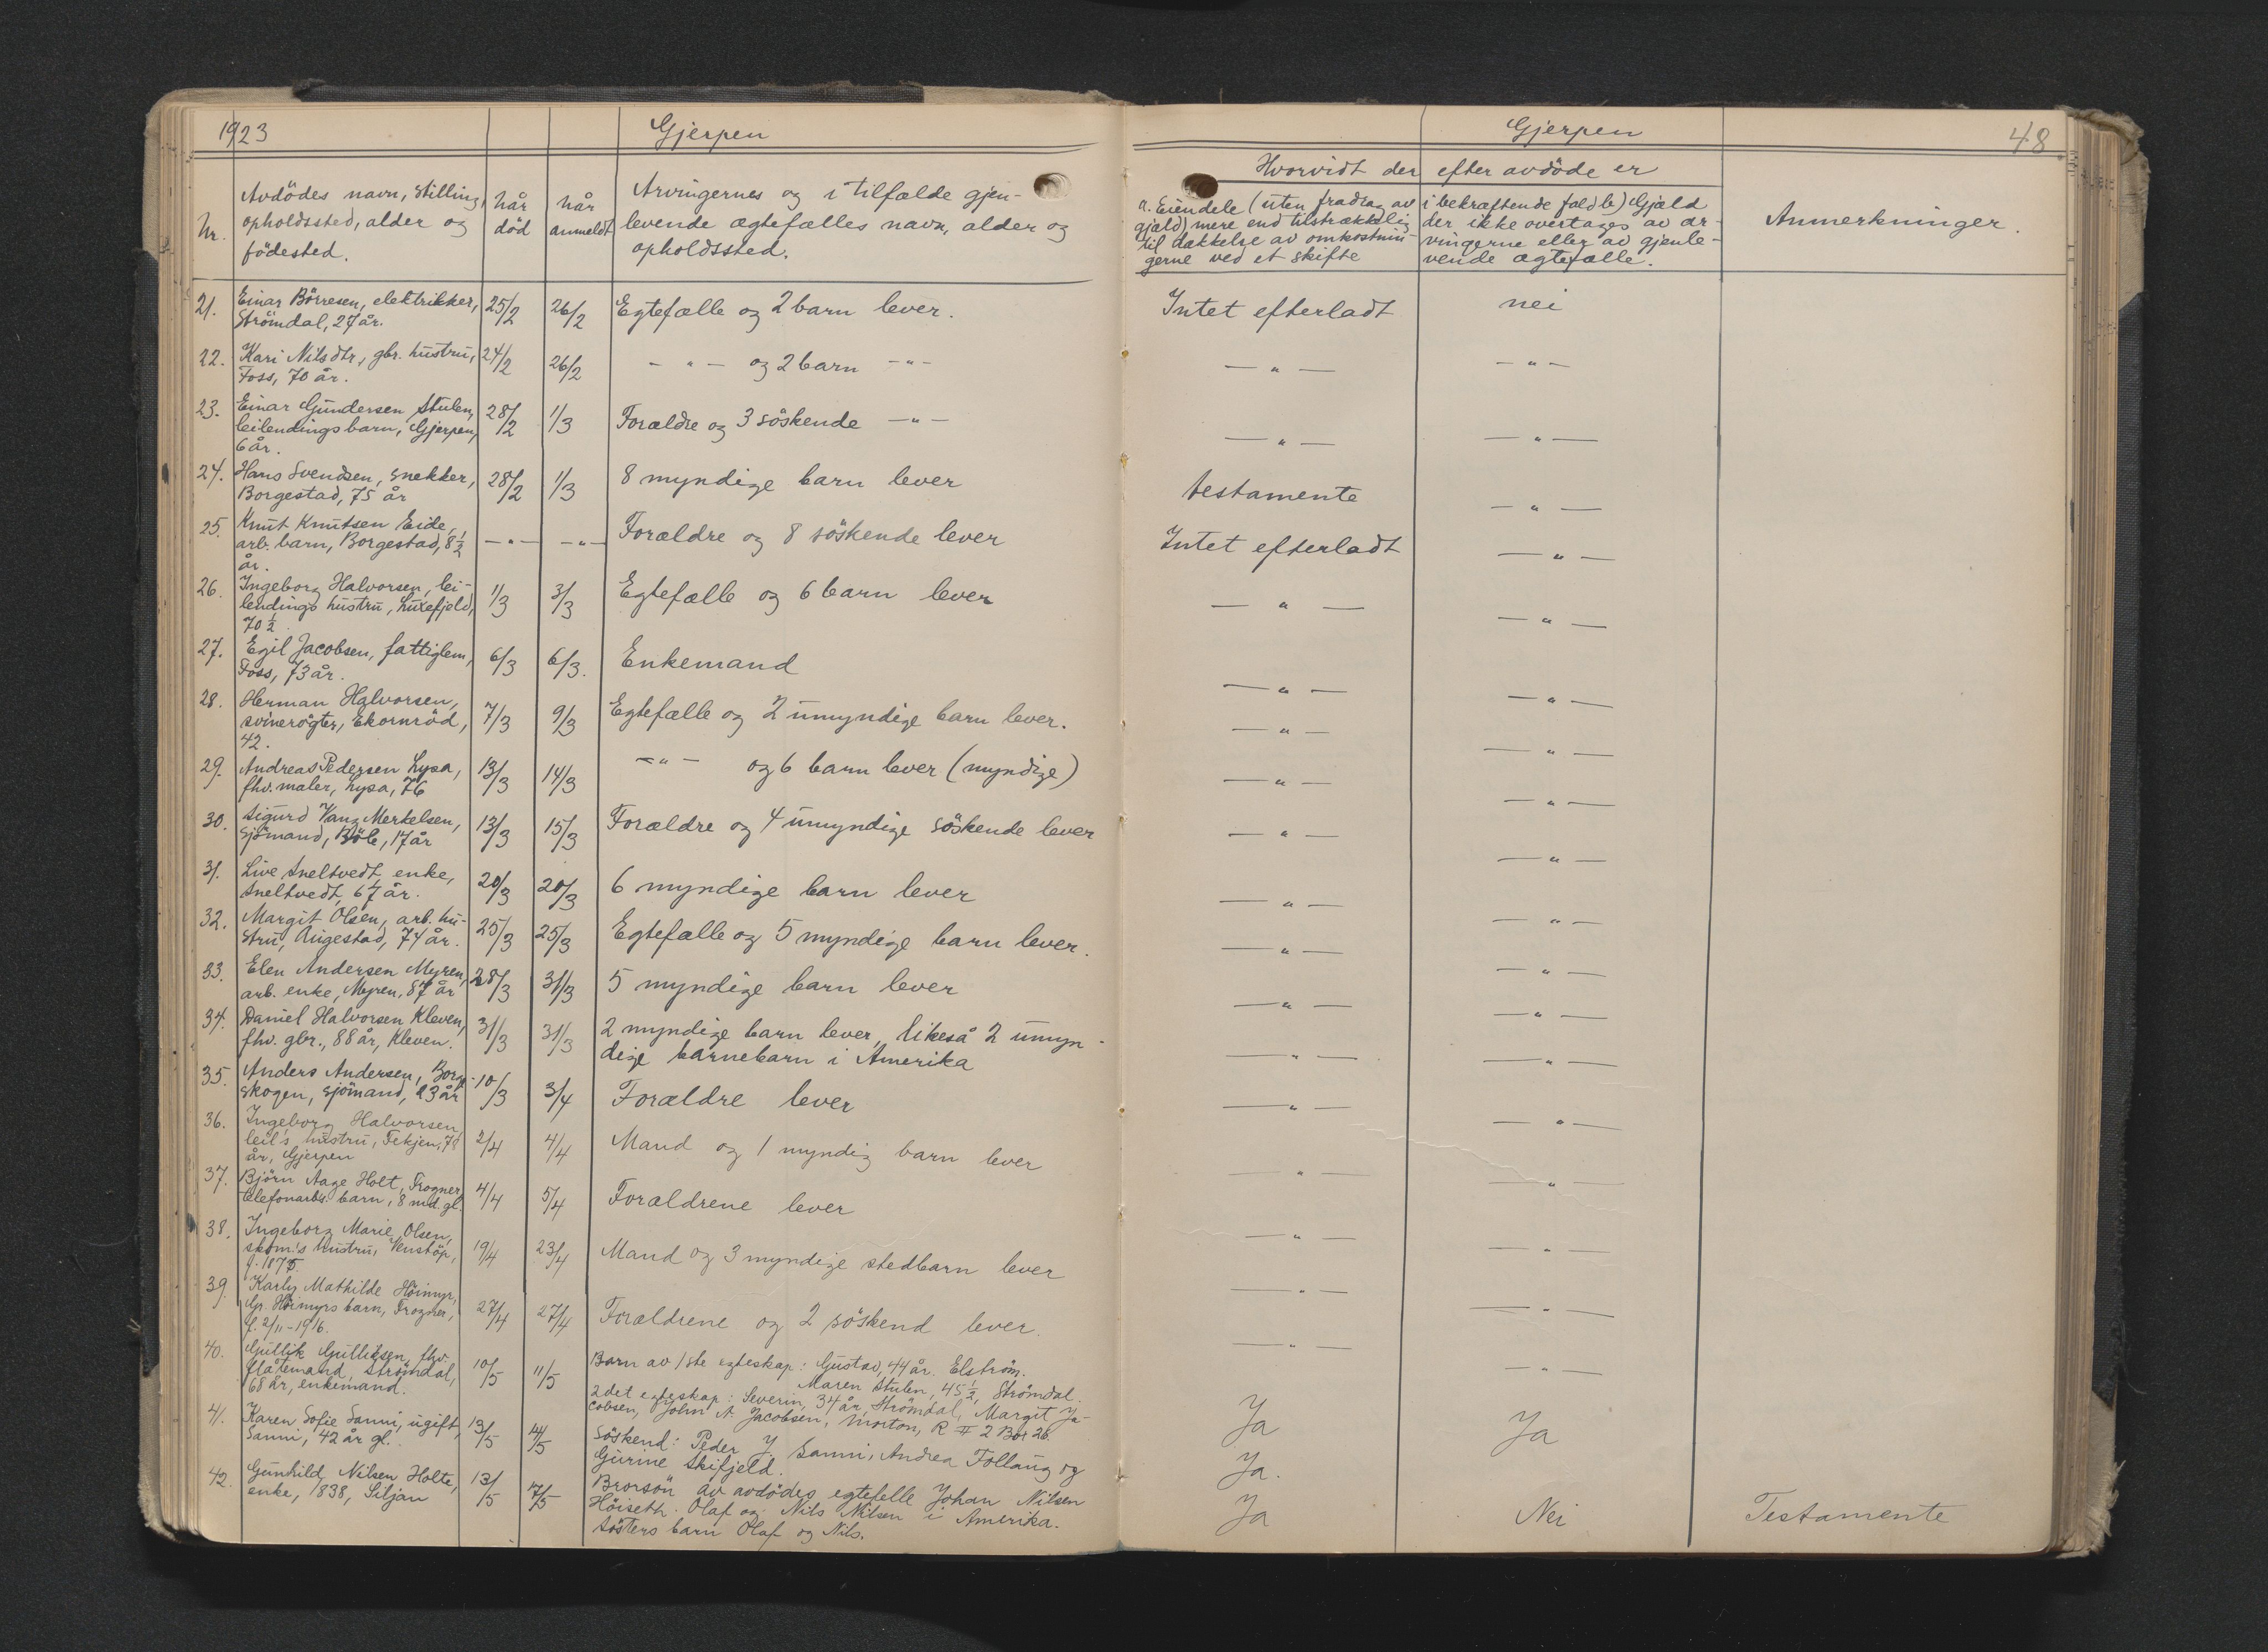 1923 Gjerpen
Nr. Avdödes navn, stilling, når når Arvingernes og i tilfælde gjen-
opholdssted, alder og död anmeldt levende ægtefælles navn, alder og
födested. opholdssted.
21. Einar Börresen, elektrikker, 25/2 26/2 Egtefælle og 2 barn lever.
Strömdal, 27 år.
22. Kari Nilsdtr, gbr. hustru, 24/2 26/2 - " - og 2 barn - " -
Foss, 70 år.
23. Einar Gundersen Stulen, 28/2 1/3 Forældre og 3 söskende - " -
leilendingsbarn, Gjerpen,
6 år.
24. Hans Svendsen, snekker, 28/2 1/3 8 myndige barn lever
Borgestad, 75 år
25. Knut Knutsen Eide, - " - - " - Forældre og 8 söskende lever
arb. barn, Borgestad, 8 1/2
år.
26. Ingeborg Halvorsen, lei- 1/3 3/3 Egtefælle og 6 barn lever
lendings hustru, Luxefjeld,
70 1/2
27. Egil Jacobsen, fattiglem, 6/3 6/3. Enkemand
Foss, 73 år.
28. Herman Halvorsen, 7/3 9/3 Egtefælle og 2 umyndige barn lever.
svinerögter, Ekornröd,
42.
29. Andreas Pedersen Lysa, 13/3 14/3 - " - og 6 barn lever (myndige)
fhv. maler, Lysa, 76
30. Sigurd Vang Merkelsen, 13/3 15/3 Forældre og 4 umyndige söskende lever
sjömand, Böle, 17 år
31. Live Sneltvedt, enke, 20/3 20/3 6 myndige barn lever
Sneltvedt, 67 år.
32. Margit Olsen, arb. hu- 25/3 25/3 Egtefælle og 5 myndige barn lever.
stru, Augestad, 74 år.
33. Elen Andersen Myren, 28/3 31/3 5 myndige barn lever
arb. enke, Myren, 87 år
34. Daniel Halvorsen Kleven, 31/3 31/3 2 myndige barn lever, likeså 2 umyn-
fhv. gbr., 88 år, Kleven. dige barnebarn i Amerika
35. Anders Andersen, Borge- 10/3 3/4 Forældre lever
skogen, sjömand, 23 år
36. Ingeborg Halvorsen, 2/4 4/4 Mand og 1 myndig barn lever
leil's hustru, Fekjen, 78
år, Gjerpen
37. Björn Aage Holt, Frogner, 4/4 5/4 Forældrene lever
telefonarb's. barn, 8 md. gl.
38. Ingeborg Marie Olsen, 19/4 23/4 Mand og 3 myndige stedbarn lever
skom's hustru, Venstöp,
f. 1875.
39. Karly Mathilde Höimyr, 27/4 27/4 Forældrene og 2 söskend lever.
Höimyrs barn, Frogner,
f. 2/11-1916.
40. Gullik Gulliksen, fhv. 10/5 11/5 Barn av 1ste egteskap: Gustav, 44 år. Elström.
flåtemand, Strömdal, Maren Stulen, 45 1/2, Strömdal.
68 år, enkemand. 2det egteskap: Severin, 34 år, Strömdal, Margit Ja-
cobsen, John A. Jacobsen, Morton, R # 2 Box 26.
41. Karen Sofie Sanni, ugift, 13/5 14/5 Söskend: Peder J Sanni, Andrea Follaug og
Sanni, 42 år gl. Gurine Skifjeld.
42. Gunhild Nilsen Holte, 13/5 17/5 Brorsön av avdödes egtefelle Johan Nilsen
enke, 1838, Siljan Höiseth. Olaf og Nils Nilsen i Amerika.
Sösters barn Olaf og Nils.
Gjerpen 48
Hvorvidt der efter avdöde er
a. Eiendele (uten fradrag av i bekræftende fald b) Gjæld
gjæld) mere end tilstrækkelig der ikke overtages av ar-
til dækkelse av omkostnin- vingerne eller av gjenle-
gerne ved et skifte vende ægtefælle.
Anmerkninger.
Intet efterladt nei
- " - - " -
- " - - " -
testamente - " -
Intet efterladt - " -
- " - - " -
- " - - " -
- " - - " -
- " - - " -
- " - - " -
- " - - " -
- " - - " -
- " - - " -
- " - - " -
- " - - " -
- " - - " -
- " - - " -
- " - - " -
- " - - " -
Ja Ja
Ja.
Ja Nei Testamente